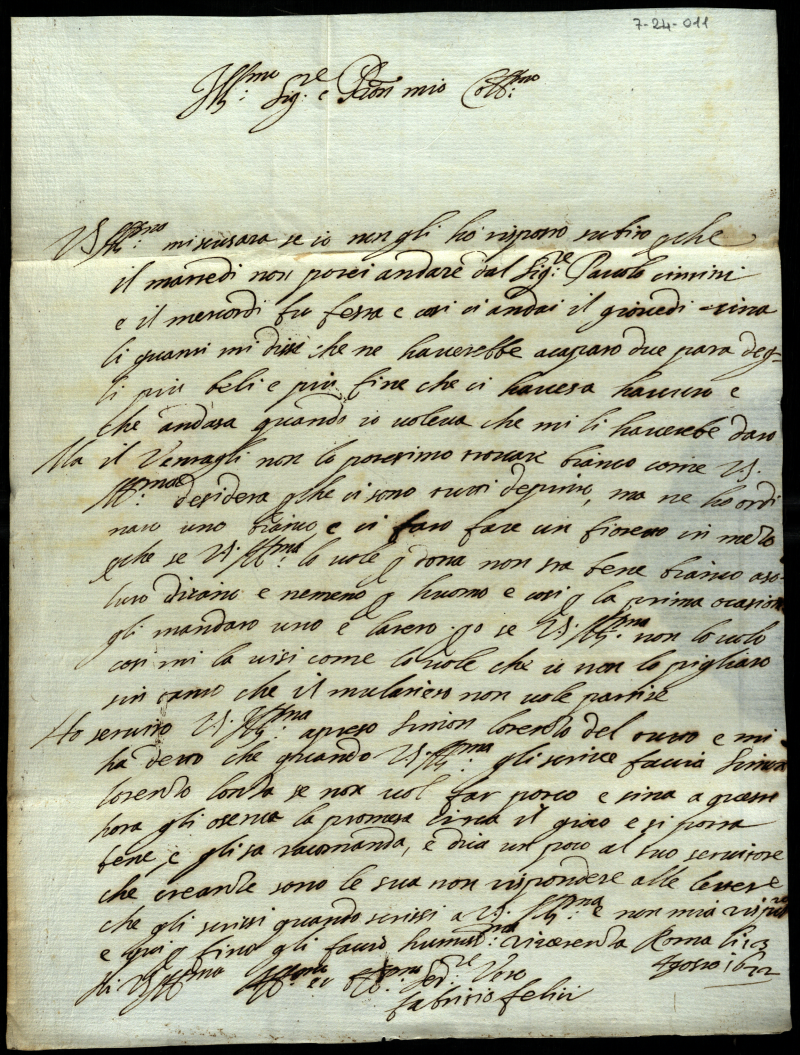 7-24-011
Ill:mo Sig:re e Pron mio Coll:mo
VS Ill:ma mi scusara se io non gli ho risposto subito pche
il martedi non potei andare dal Sig:re Pauolo
e il mercordi fu festa e cosi ci andai il giovedi circa
li guanti mi disse che ne haverebbe acaparo due para deg-
li più beli e più fine che ci havesa havuto e
che andasa quando io voleva che mi li haverebe dato
Ma il Ventagli non lo potessimo trovare bianco come VS.
Ill:ma desidera pche ci sono tutti depinti, ma ne ho ordi
nato uno bianco e ci faro fare un fioreto in mezo
pche se VS. Ill:ma lo vole p dona non sta bene bianco aso-
luto dicano e nemeno p huomo e cosi p la prima ocasion
gli mandaro uno e laltro po se VS. Ill:ma non lo vole
cosi mi la visi come lo vole che io non lo pigliaro
sin tanto che il mulatiero non vole partire
Ho servito VS. Ill:ma apreso Simon lorenzo del tutto e mi
ha detto che quando VS. Ill:ma gli scrive facia Simon
lorenzo se non vol far poco e sina a questi
hora gli oserva la promesa circa il gioco e si porta
bene, e gli sa racomanda, e dica un poco al suo servitore
che creanze sono le sua non rispondere alle lettere
che gli scrissi quando scrissi a VS. Ill:ma e non mia
e qui p fine gli facio humiliss:ma riverenza Roma li 13
Agosto 1622
Di VS Ill:ma Ser:re Vero
fabritio felici